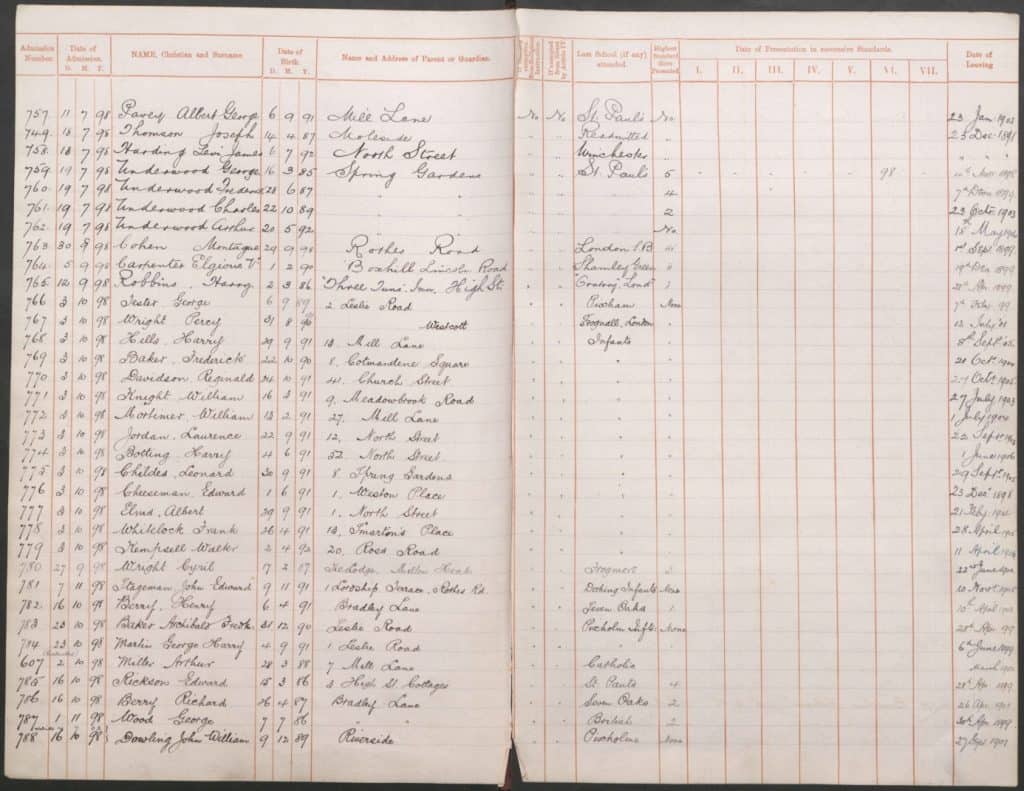 Admission Number Date of Admission. D. M. Y. NAME, Christian and Surname Date of Birth. D. M. Y. Name and Address of Parent or Guardian. Last School (if any) attended. Highest Standard there Presented Date of Presentation in successive Standards. I. II. III. IV. V. VI. VII. Date of Leaving
757 11 7 98 Pavey Albert George 6 9 91 Mill Lane No No St. Pauls No 23 Jan 1903
749 18 7 98 Thomson Joseph 14 4 87 Moleside " " Readmitted " 23 Dec 1898
758 18 7 98 Harding Levi James 6 7 92 North Street " " Winchester " " "
759 19 7 98 Underwood George 16 3 85 Spring Gardens " " St. Pauls 5 98
760 19 7 98 Underwood Frederic 28 6 87 " " " " " 4
761 19 7 98 Underwood Charles 22 10 89 " " " " " 2 23 Oct 1903
762 19 7 98 Underwood Arthur 20 5 92 " " " " " No 18th May
763 30 8 98 Cohen Montague 29 9 98 Rothes Road " " London S.B. 1st Sept 1899
764 5 9 98 Carpenter Elgione V. 1 2 90 Boxhill Lincoln Road " " Shamley Green 19th Dec 1899
765 12 9 98 Robbins, Harry 2 3 86 Three Tuns Inn, High St. " " 1899
766 3 10 98 Jester George 6 9 89 2 Leslie Road " " Pixham None 7th Feby 99
767 3 10 98 Wright Percy 31 8 90 Westcott " " Frognall, London 12 July
768 3 10 98 Hills, Harry 29 9 91 13, Mill Lane " " Infants 8th Sept
769 3 10 98 Baker, Frederick 22 10 90 8, Cotmandene Square " " " 20 Oct
770 3 10 98 Davidson, Reginald 24 10 91 41, Church Street " " " 27 Oct 1905
771 3 10 98 Knight William 16 3 91 9, Meadowbrook Road " " " 27 July 1903
772 3 10 98 Mortimer, William 13 2 91 27, Mill Lane " " " 1 July 1904
773 3 10 98 Jordan, Laurence 22 9 91 12, North Street " " " 22 Sept
774 3 10 98 Botting Harry 4 6 91 52, North Street " " " 1 June 1906
775 3 10 98 Childes, Leonard 30 9 91 8 Spring Gardens " " " 29 Sept 1905
776 3 10 98 Cheeseman, Edward 1 6 91 1, Weston Place " " " 23 Dec 1898
777 3 10 98 Elrad, Albert 29 9 91 1, North Street " " " 21 Feby
778 3 10 98 Whitelock Frank 26 4 91 13, Smarton's Place " " " 28 April
779 3 10 98 Kempsell Walter 2 4 92 20, Rosa Road " " " 11 April
780 27 9 98 Wright Cyril 7 2 87 " " 3 22nd June
781 7 11 98 Stageman John Edward 9 11 91 1 Lordship Terrace, Rothes Rd. " " Dorking Infants None 10 Nov
782 16 10 98 Berry, Henry 6 4 91 Bradley Lane " " Seven Oaks 1 10th April
783 23 10 98 Baker Archibald Fredk. 31 12 90 Leslie Road " " Pixholm Infts. None 28th Apr 99
784 23 10 98 Martin George Harry 4 9 91 1 Leslie Road " " " " 6th June 1899
607 2 10 98 Miller Arthur 28 3 88 7 Mill Lane " " Catholic March
785 16 10 98 Rickson Edward 15 3 86 3 High St. Cottages " " St Pauls 4 28th Apr 1899
786 16 10 98 Berry Richard 26 4 87 Bradley Lane " " Seven Oaks 2 26 Apr 1901
787 1 11 98 Wood George 7 7 86 " " " " British 2 30th Apr 1899
788 16 10 98 Dowling John William 9 12 89 Riverside " " Pixholme None 27 Sep 1901